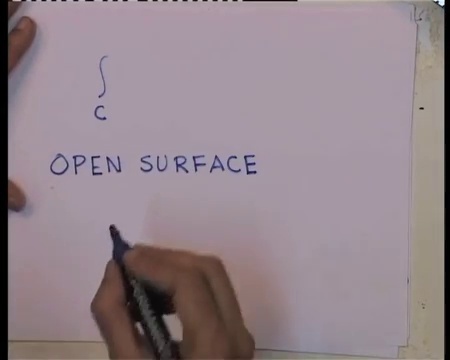 ∫
C
OPEN SURFACE